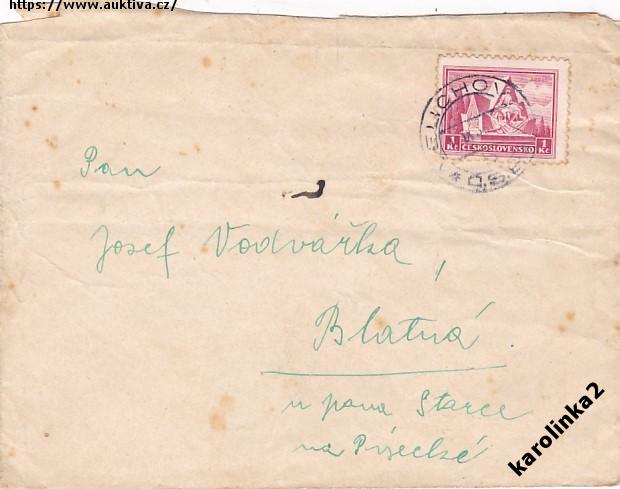 https://www.auktiva.cz/
1 Kč ČESKOSLOVENSKO 1 Kč
Pan
Josef Vodvářka,
Blatná
u pana Starce
na Písecké
karolinka2